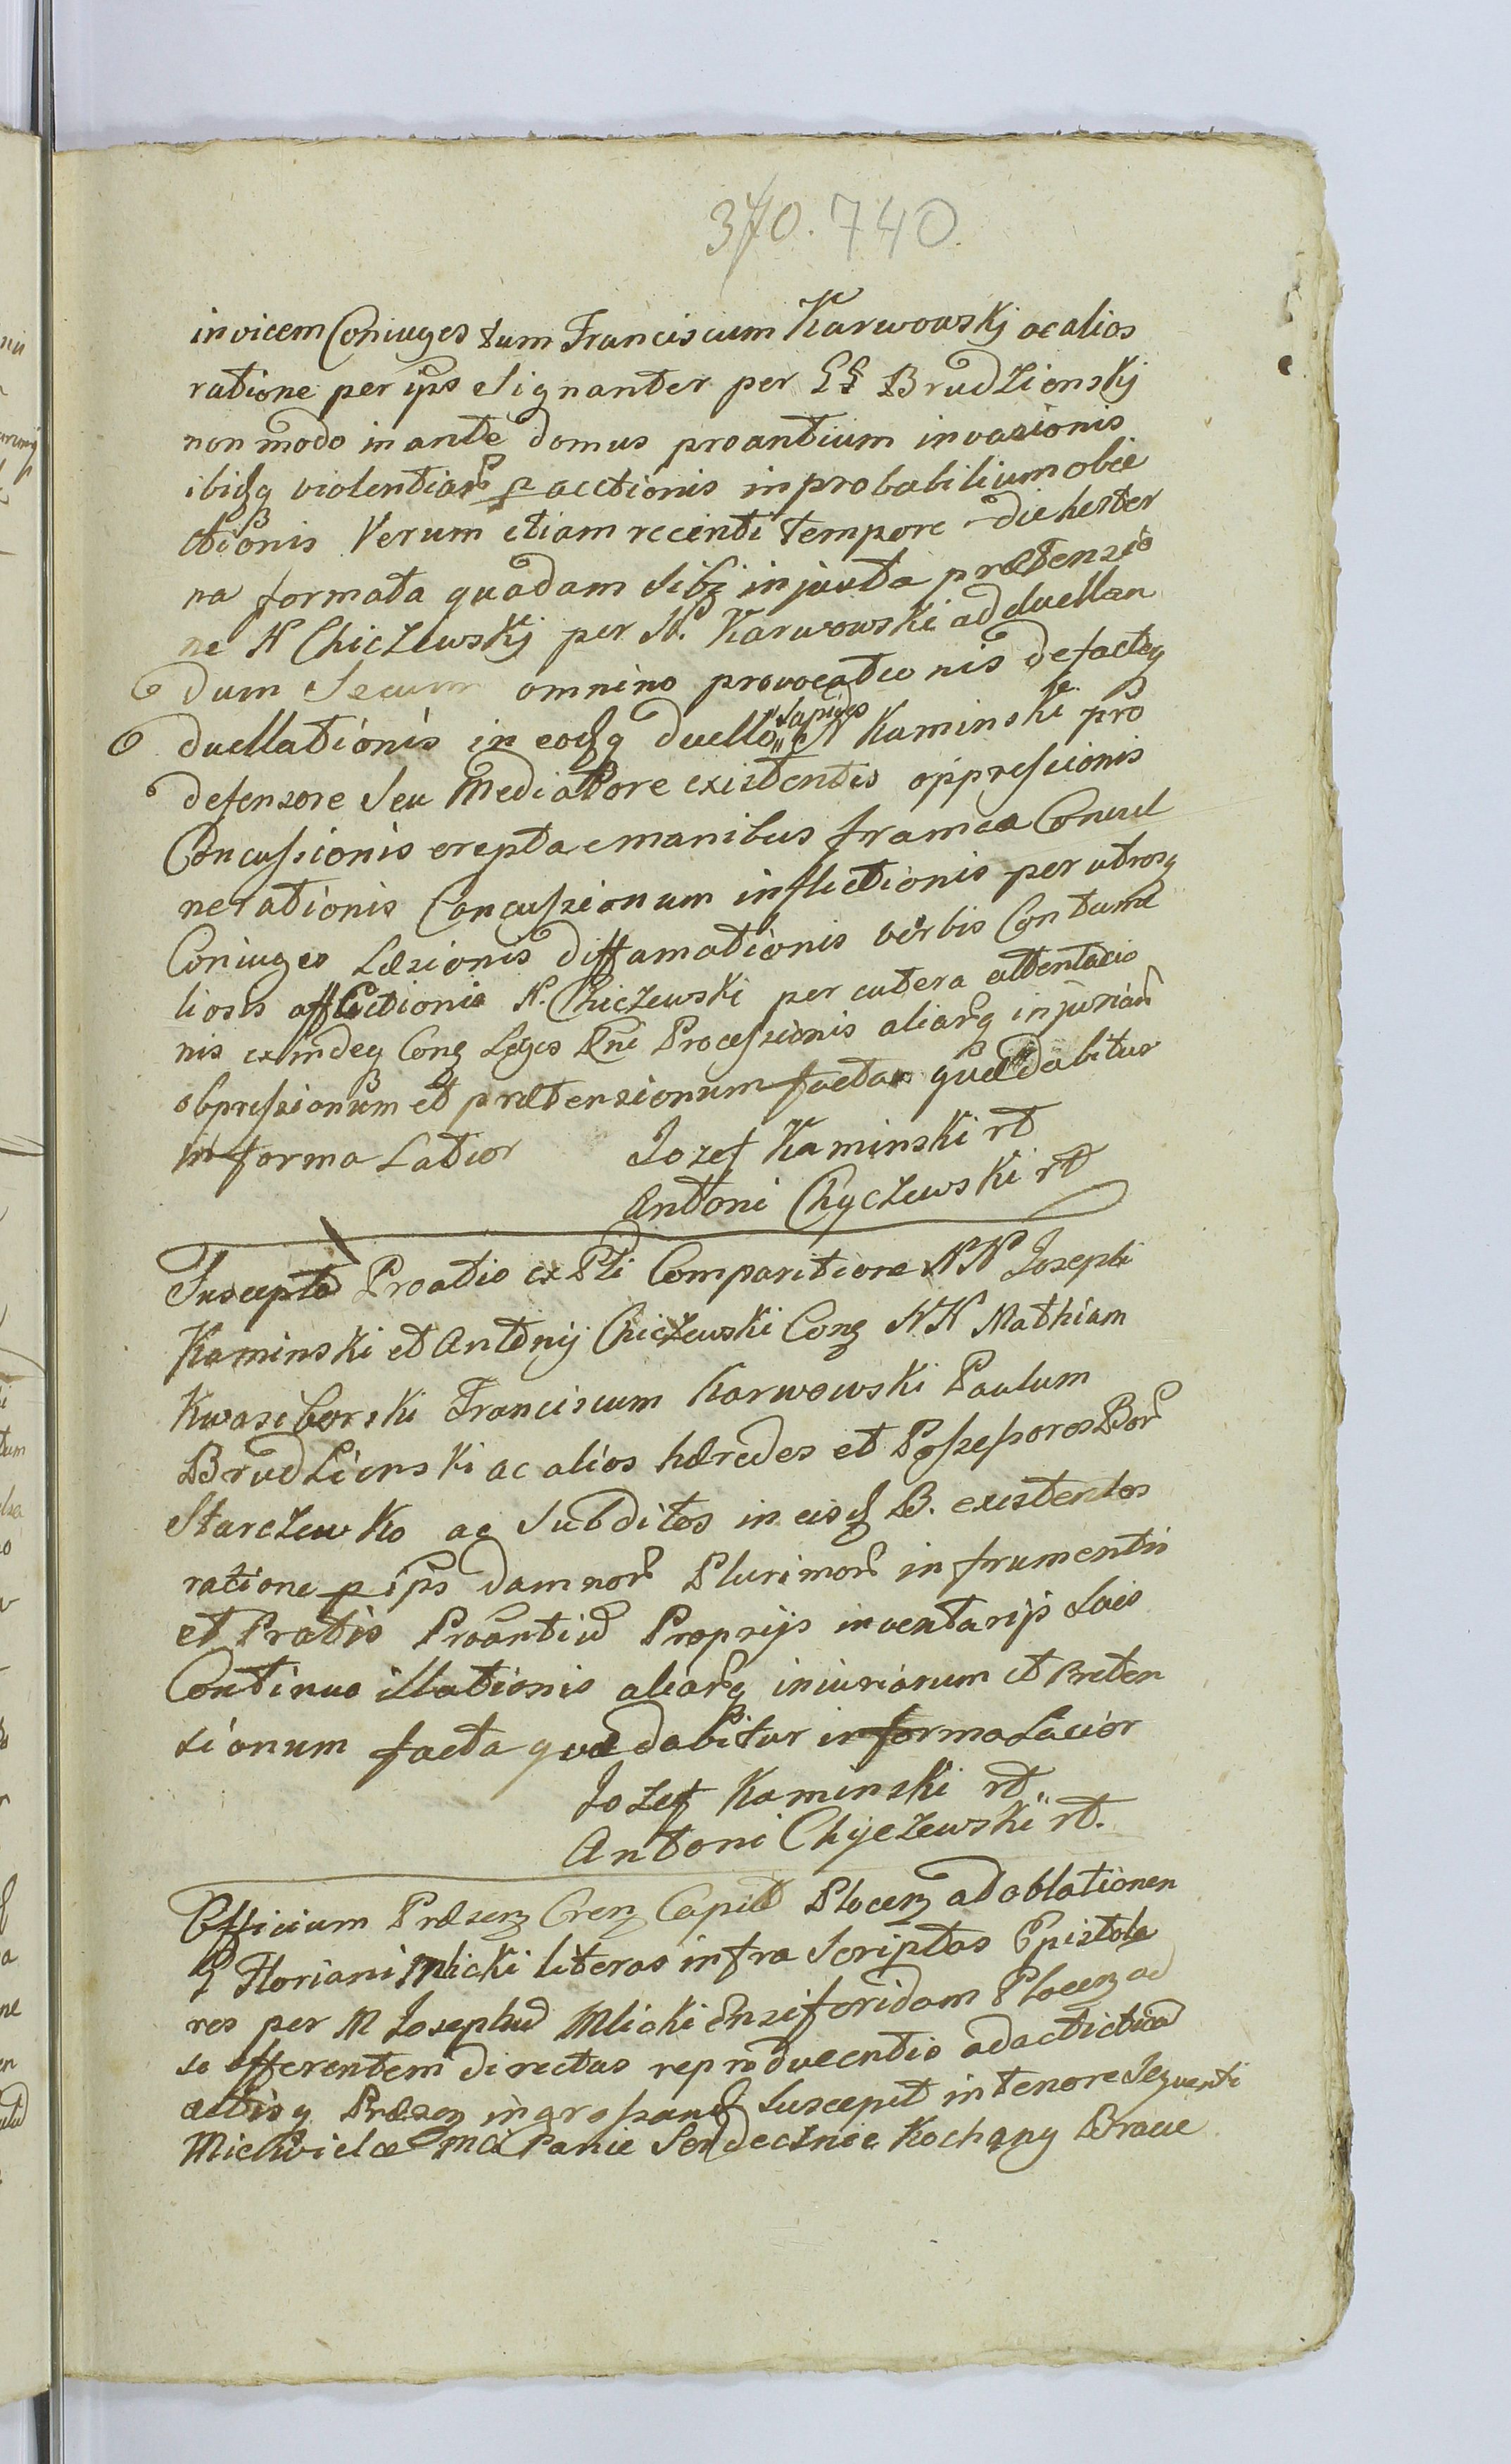 370. 740.
invicem Coniuges tum Franciscum Karwowskj ac alios
ratione per ips Signanter per GG Brudzionskj
non modo in ante domus proantium invasionis
ibidq violentiar pactionis inprobabilium obie
ctionis Verum etiam recenti tempore die hester
na formata quadam Sibi injusta prætensio
ne N Chiczewskj per N. Karwowski ad duellan
dum Secum omnino provocationis defactoq
duellationis in eodq duello N Kaminski pro
defensore Seu Mediatore existentis oppressionis
Concussionis erepta e manibus framea Convul
nerationis Concussionum inflictionis per utrosq
Coniuges Læsionis diffamationis verbis Contume
liosis afflictionis N. Chiczewski per cætera attentatio
nis exindeq Con Leges Rni Processionis aliarq injuriar
obpressionum et prætensionum facta quæ dabitur
in forma Latior Jozef Kaminski rt
Antoni Chyczewski rt
Suscepta Proatio ex Pti Comparitione NN Josephi
Kaminski et Antonij Chiczewski Con NN Mathiam
Kwasiborski Franciscum Karwowski Paulum
Brudzienski ac alios hæredes et Possessores Bor
Starczewko ac Subditos in eisd B. existentes
ratione p ips damnor Plurimor in frumentis
et Pratis Proantiu Proprijs inventarijs Suis
Continuo illationis aliarq iniuriarum et Preten
sionum facta quæ dabitur in forma Lacior
Jozef Kaminski rt.
Antoni Chyczewski rt.
Officium Præsenz Crenz Capit Plocenz ad oblationem
G Floriani Mlicki literas infra Scriptas Epistola
res per M Josephu Mlicki Ensiferidam Plocenz ad
se offerentem directas reproducentis ad actictiau
actisq Præsenz ingrossand Suscepit in tenore Sequenti
Mickwielce Mci Panie Serdecznie Kochany Bracie